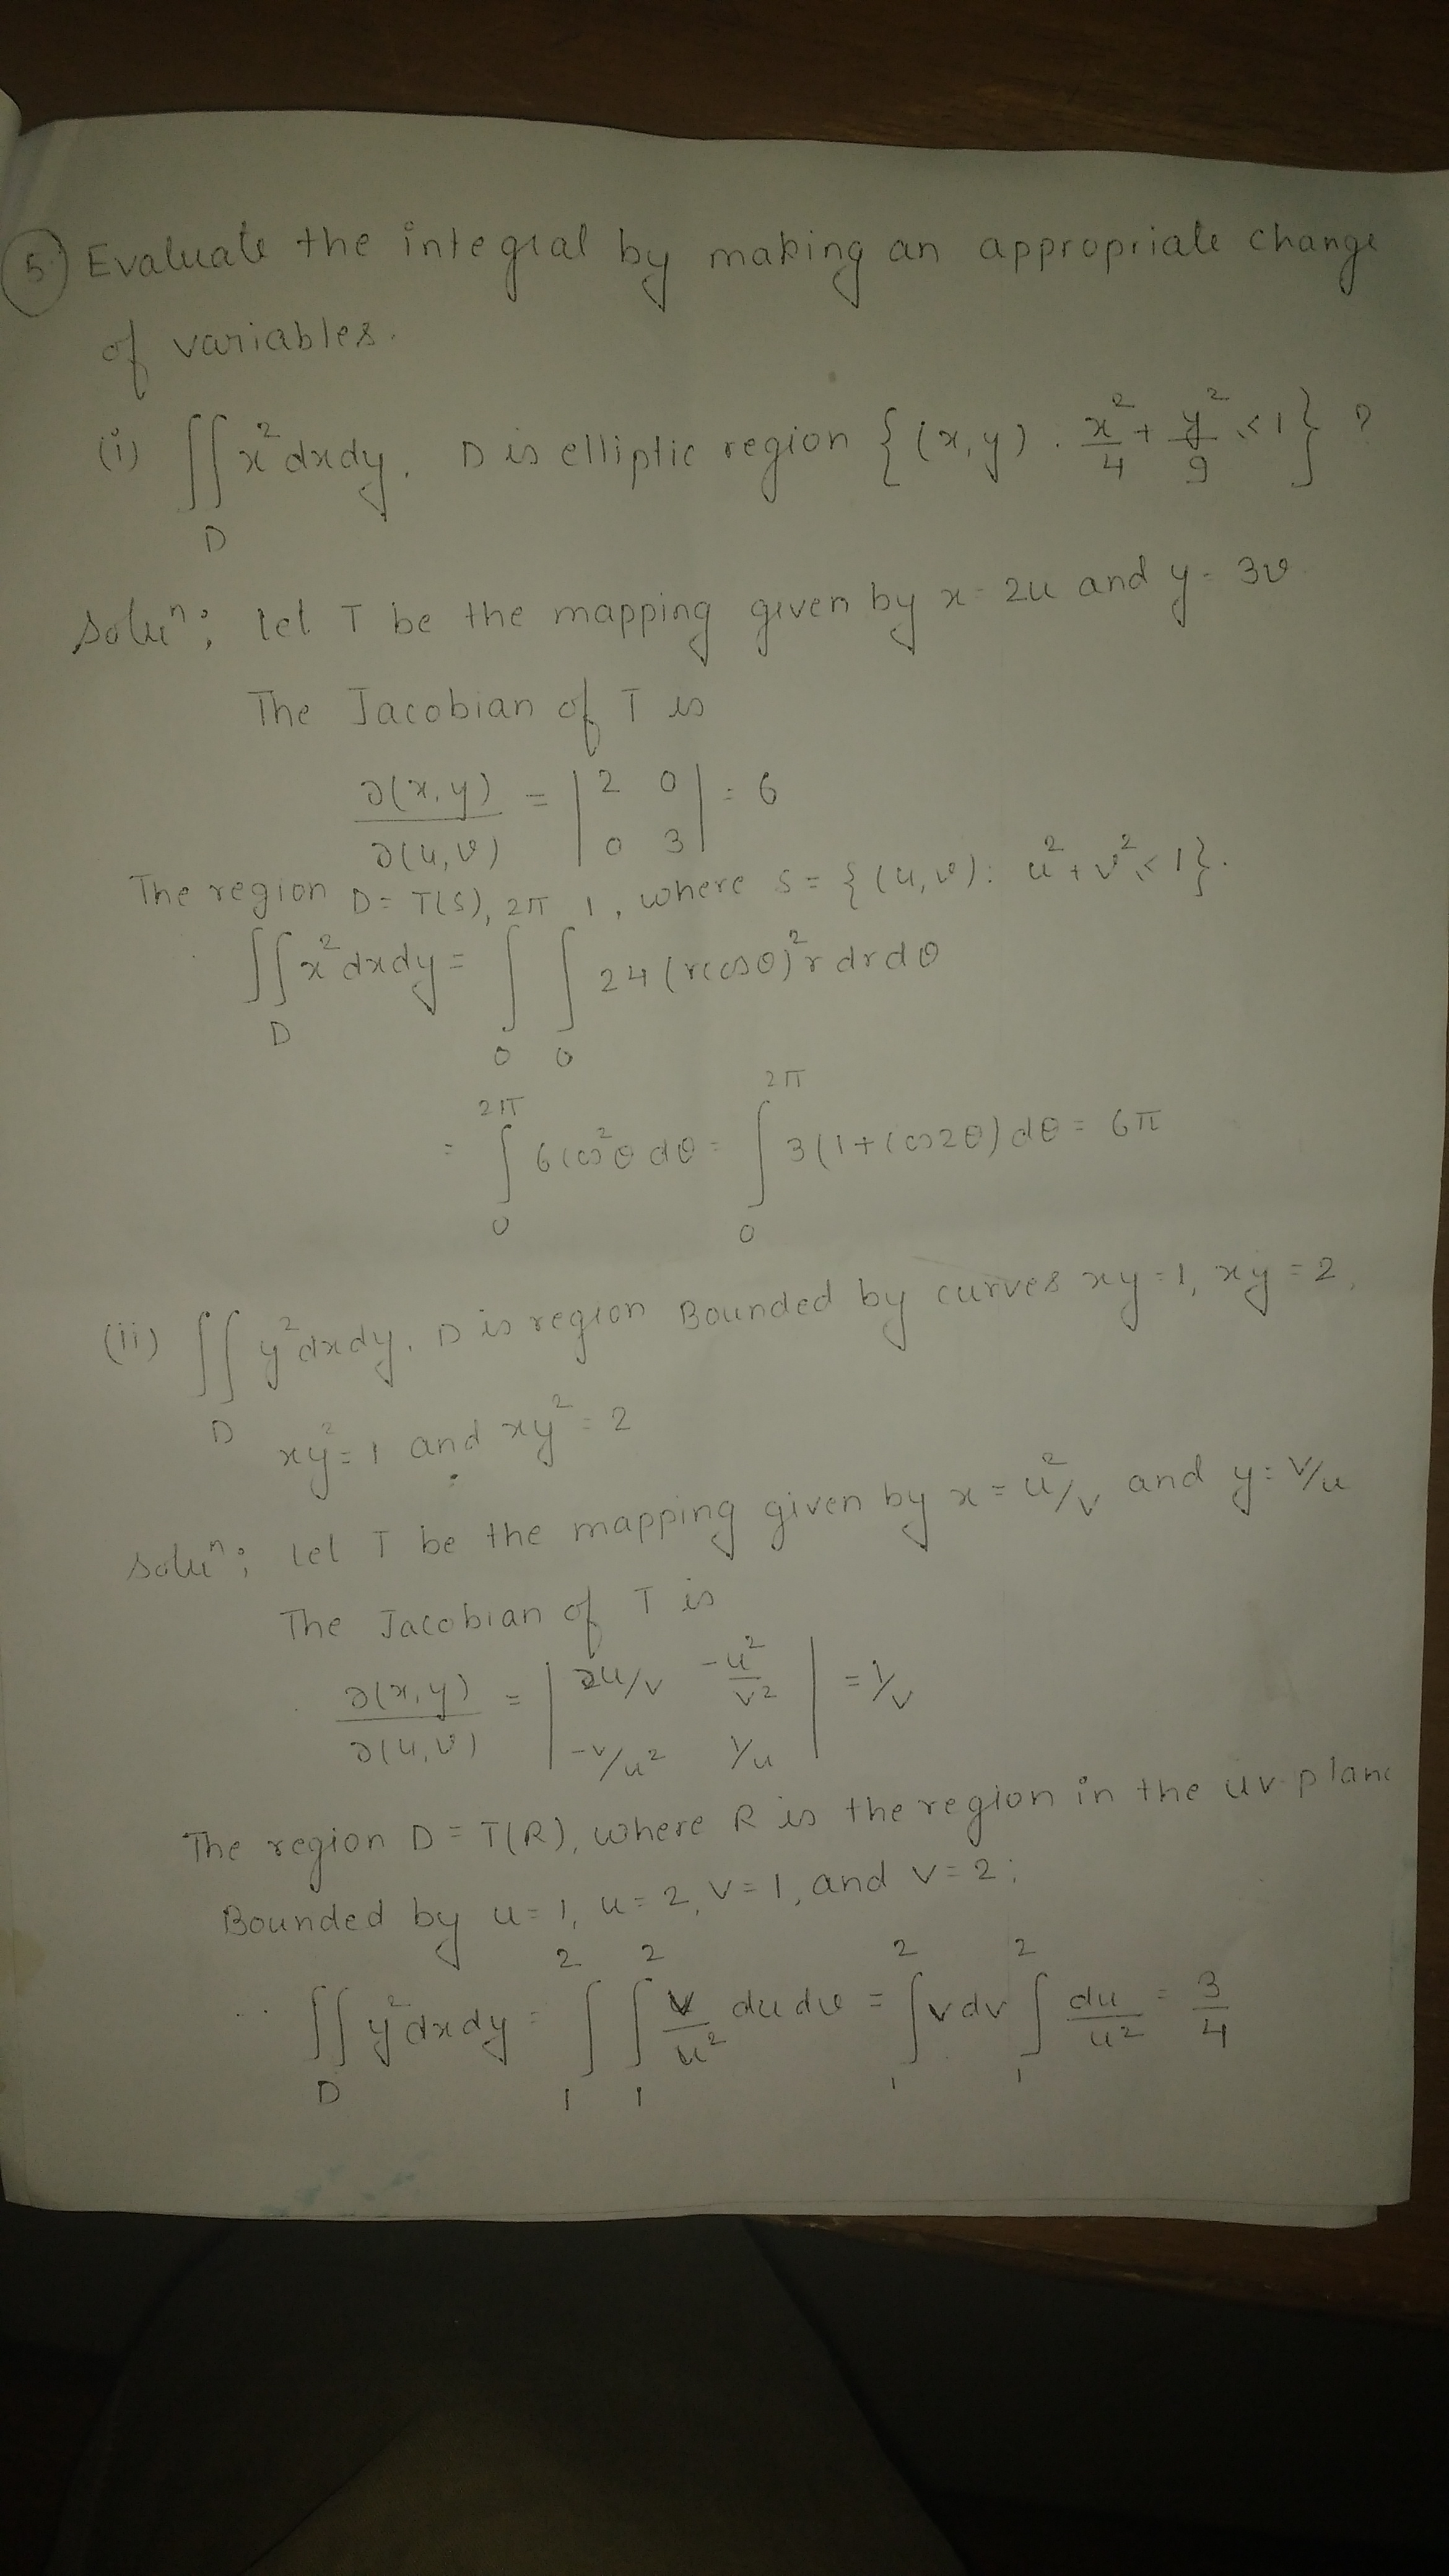 5. Evaluate the integral by making an appropriate change
of variables.
(i) ∬_D x² dxdy. D is elliptic region {(x,y) . x²/4 + y²/9 ≤ 1} ?
Soluⁿ: let T be the mapping given by x = 2u and y = 3v
The Jacobian of T is
∂(x,y)/∂(u,v) = |2 0; 0 3| = 6
The region D = T(S), where S = {(u,v): u²+v² ≤ 1}.
∬_D x² dxdy = ∫_0^2π ∫_0^1 24(rcosθ)² r dr dθ
= ∫_0^2π 6cos²θ dθ = ∫_0^2π 3(1+cos2θ) dθ = 6π
(ii) ∬_D y² dxdy. D is region Bounded by curves xy=1, xy=2,
xy²=1 and xy²=2
Soluⁿ: let T be the mapping given by x = u²/v and y = v/u
The Jacobian of T is
∂(x,y)/∂(u,v) = |2u/v -u²/v²; -v/u² 1/u| = 1/v
The region D = T(R), where R is the region in the uv-plane
Bounded by u=1, u=2, v=1, and v=2;
∴ ∬_D y² dxdy = ∫_1^2 ∫_1^2 v/u² du dv = ∫_1^2 v dv ∫_1^2 du/u² = 3/4